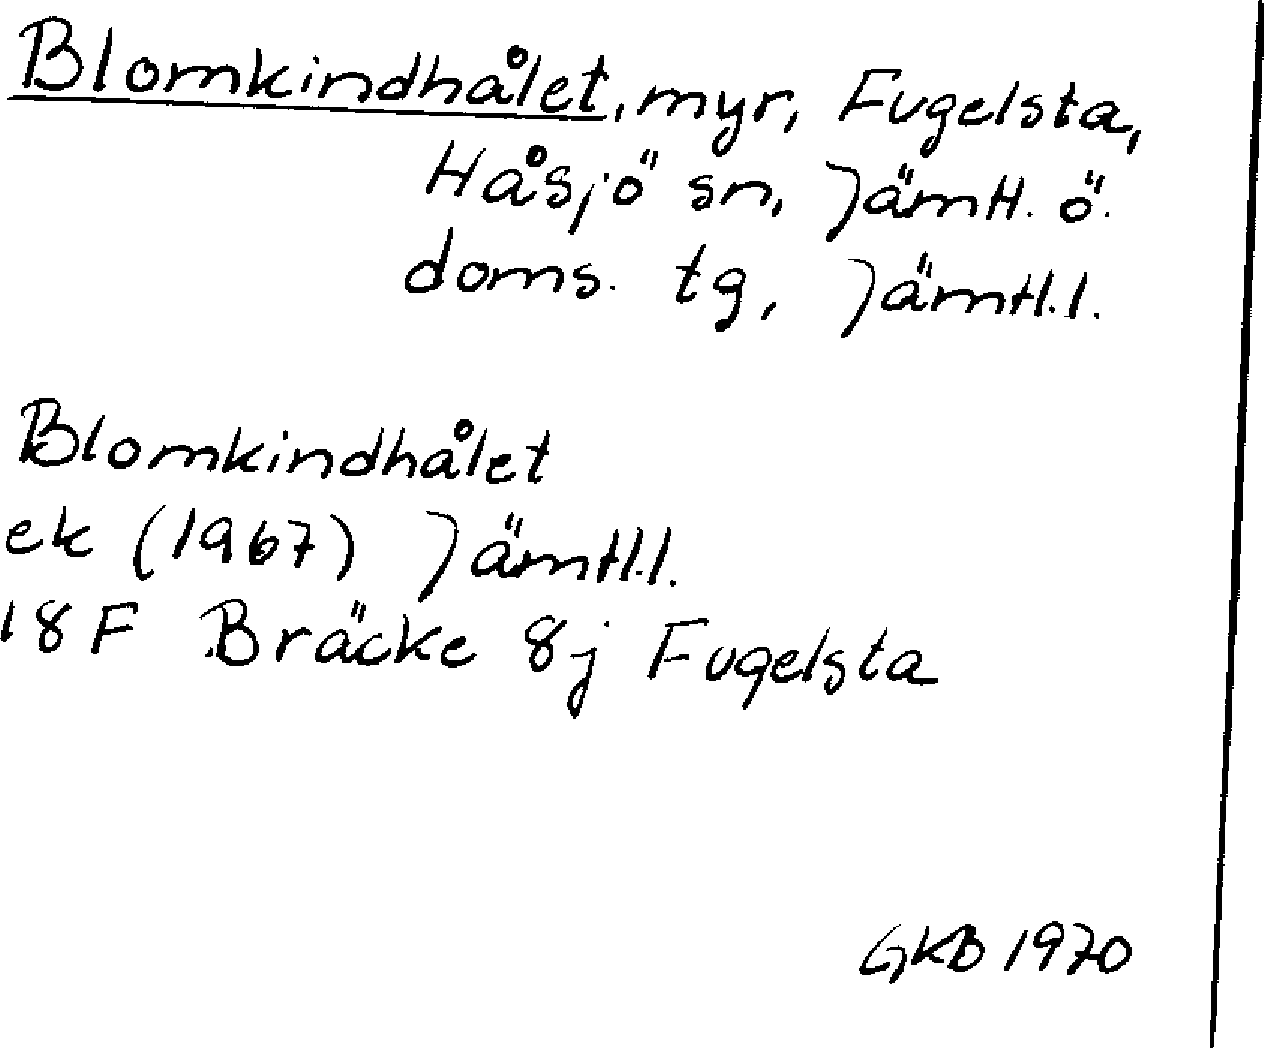 Blomkindhålet, myr, Fugelsta,
Håsjö sn, Jämtl. ö.
doms. tg, Jämtl.l.
Blomkindhålet
ek (1967) Jämtl.l.
18F Bräcke 8j Fugelsta
GKB 1970